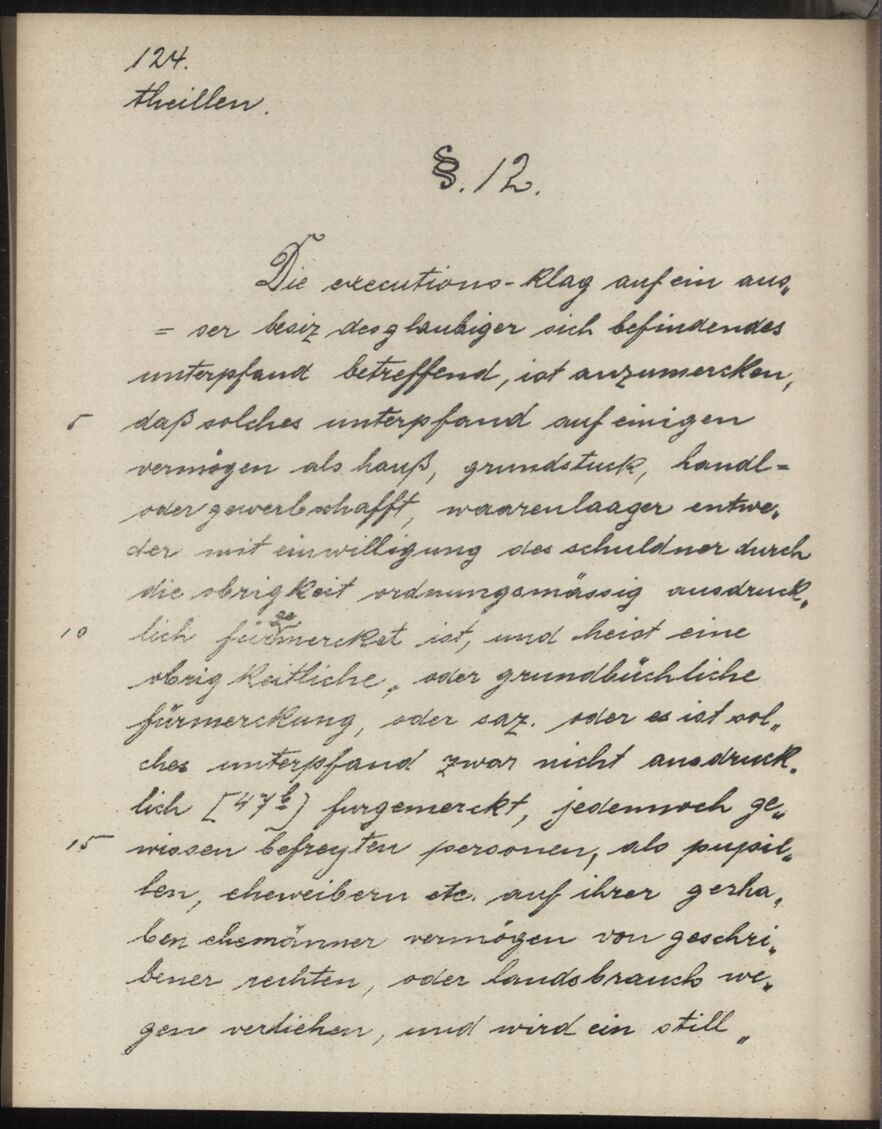 124.
theillen.
§. 12.
Die executions-klag auf ein aus„
= ser besiz des glaubiger sich befindendes
unterpfand betreffend, ist anzumercken,
5 daß solches unterpfand auf einigen
vermögen als hauß, grundstuck, handl=
oder gewerbschafft, waarenlaager entwe„
der mit einwilligung des schuldner durch
die obrigkeit ordnungsmässig ausdruck„
10 lich fürgemercket ist, und heist eine
obrigkeitliche„ oder grundbüchliche
fürmerckung, oder saz. oder es ist sol„
ches unterpfand zwar nicht ausdruck„
lich [47b] furgemerckt, jedennoch ge„
15 wissen befreyten personen, als pupil„
len, eheweibern etc. auf ihrer gerha„
ben ehemänner vermögen von geschri„
bener rechten, oder landsbrauch we„
gen verliehen, und wird ein still„